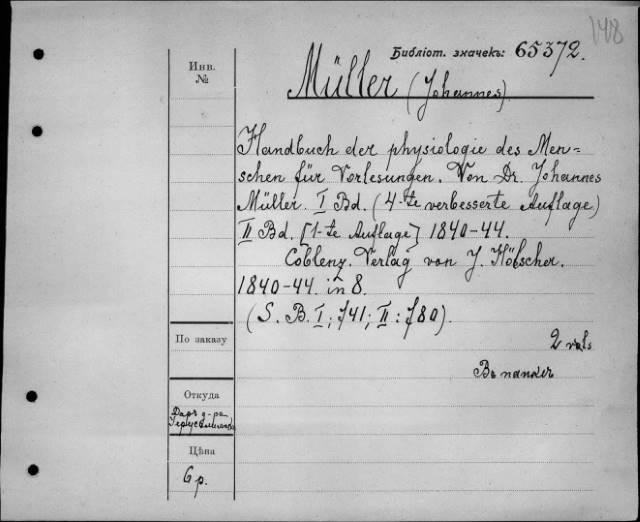 148
Библіот. значекъ: 65372.
Инв.
№
Müller (Johannes)
Handbuch der physiologie des Men=
schen für Vorlesungen. Von Dr. Johannes
Müller. I Bd. (4-te verbesserte Auflage)
II Bd. [1-te Auflage] 1840-44.
Coblenz. Verlag von J. Hölscher.
1840-44. in 8.
(S. B. I; 741; II: 780).
По заказу
2 vols
Въ папкѣ
Откуда
Даръ д-ра
Цѣна
6 р.